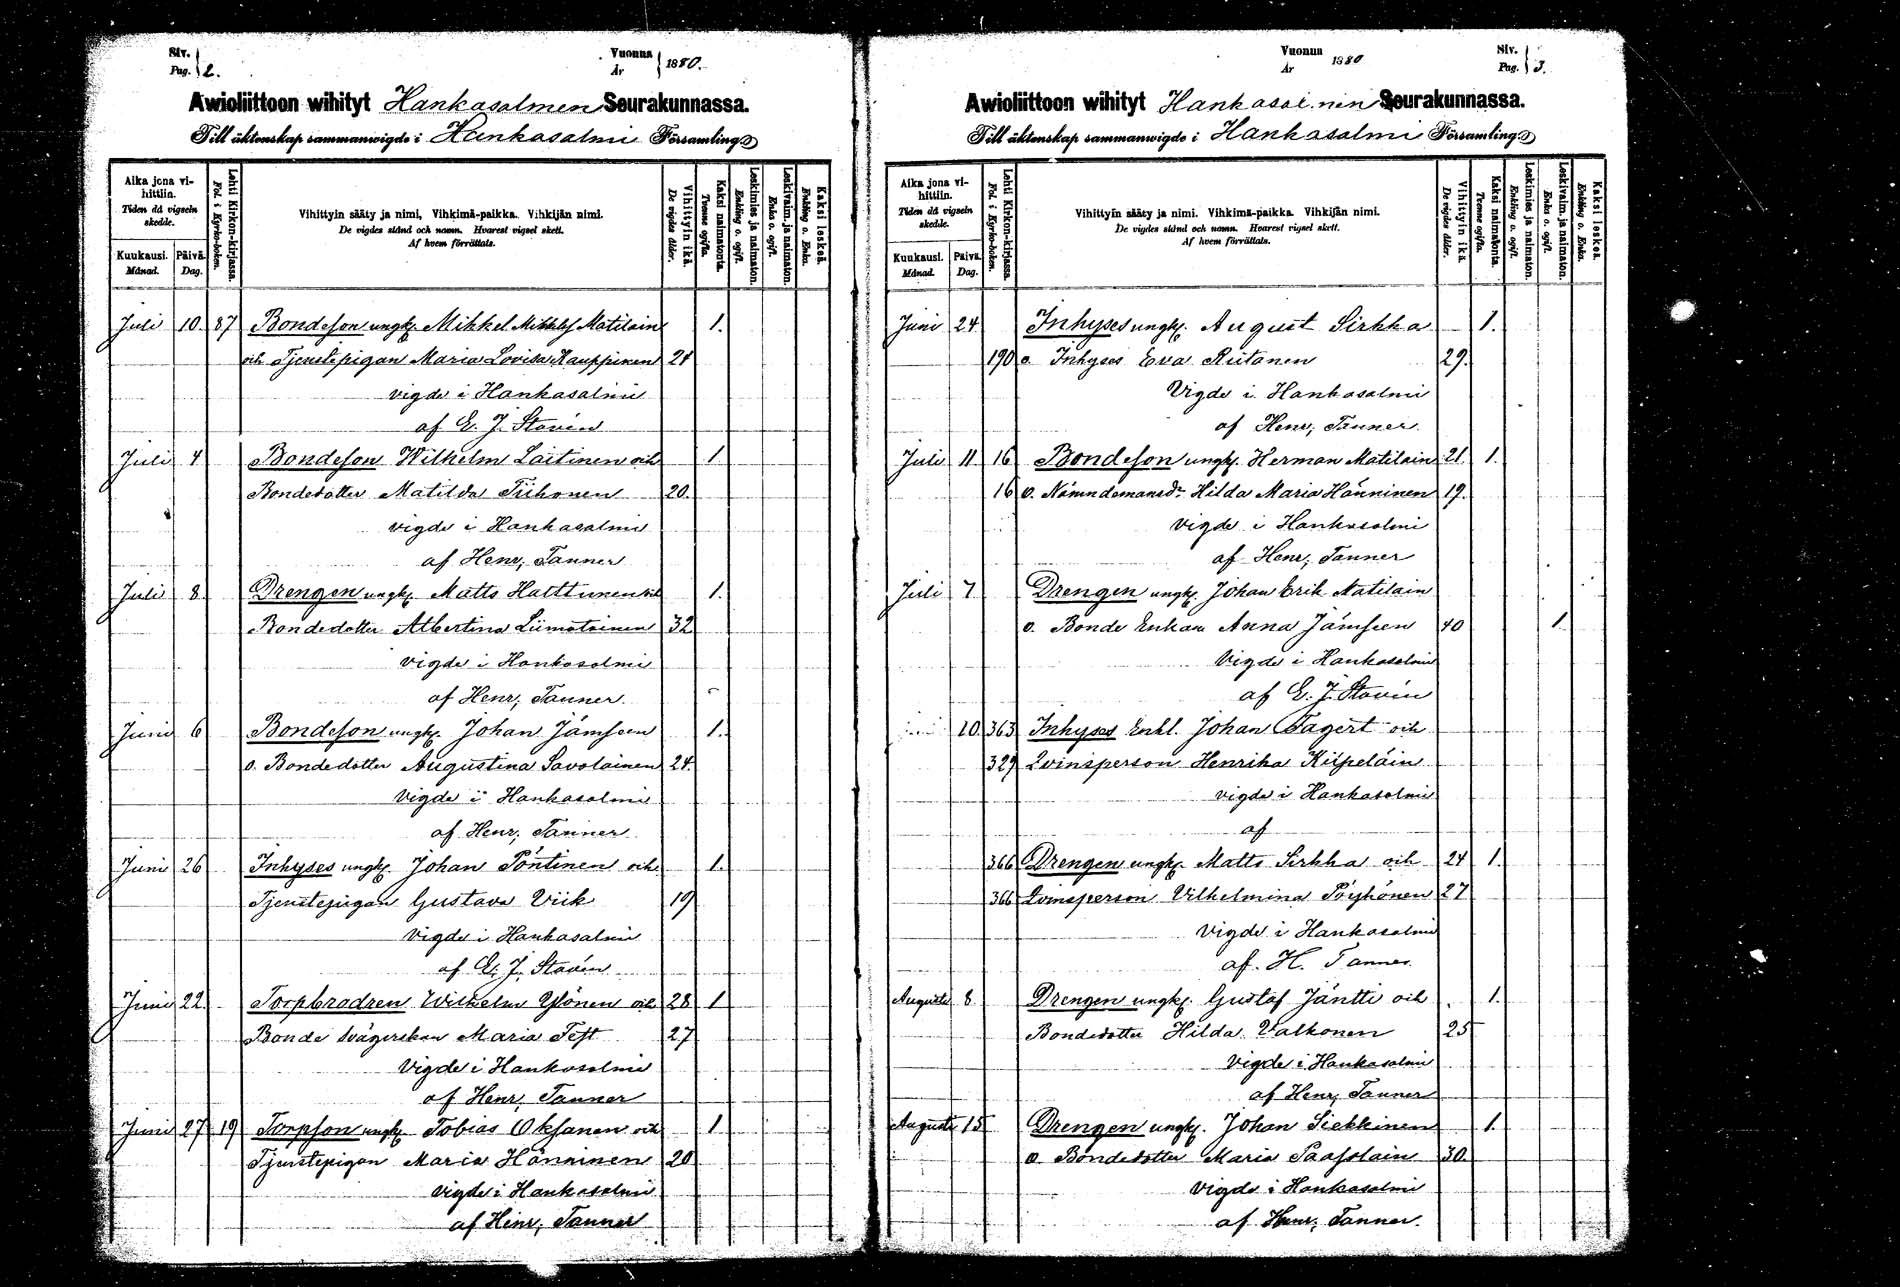 Siv. Pag. 2. Vuonna År 1880.
Awioliittoon wihityt Hankasalmen Seurakunnassa.
Till äktenskap sammanwigde i Hankasalmi Församling
Aika jona vihittiin. Tiden då vigseln skedde.
Kuukausi. Månad. Päivä. Dag.
Lehti Kirkon-kirjassa. Fol. i Kyrko-boken.
Vihittyin sääty ja nimi, Vihkimä-paikka. Vihkijän nimi.
De vigdes stånd och namn. Hvarest vigsel skett.
Af hvem förrättats.
Vihittyin ikä. De vigdes ålder.
Kaksi naimatonta. Tvenne ogifta.
Leskimies ja naimaton. Enkling o. ogift.
Leskivaim. ja naimaton. Enka o. ogift.
Kaksi leskeä. Enkling o. Enka.
Juli 10. 87 Bondeson ungk. Mikkel Mikkelsf Matilain 1.
och Tjenstepigan Maria Lovisa Kauppinen 24
vigde i Hankasalmi
af E. J. Stavén
Juli 4 Bondeson Wilhelm Laitinen och 1
Bondedotter Matilda Tiihonen 20.
vigde i Hankasalmi
af Henr; Tanner
Juli 8 Drengen ungk. Matts Halttunen och 1.
Bondedotter Albertina Liimatainen 32
vigde i Hankasalmi
af Henr; Tanner.
Juni 6 Bondeson ungk. Johan Jämsen 1.
o. Bondedotter Augustina Savolainen 24.
vigde i Hankasalmi
af Henr; Tanner
Juni 26 Inhyses ungk. Johan Pöntinen och 1.
Tjenstepigan Gustava Viik 19
vigde i Hankasalmi
af E. J. Stavén
Juni 22. Torpbrodren Wilhelm Ylönen och 28 1
Bonde svägerskan Maria Teft 27
vigde i Hankasalmi
af Henr; Tanner
Juni 27 19 Torpson ungk. Tobias Oksanen och 1
Tjenstepigan Maria Hänninen 20
vigde i Hankasalmi
af Henr; Tanner
Siv. Pag. 3. Vuonna År 1880
Awioliittoon wihityt Hankasalmen Seurakunnassa.
Till äktenskap sammanwigde i Hankasalmi Församling
Aika jona vihittiin. Tiden då vigseln skedde.
Kuukausi. Månad. Päivä. Dag.
Lehti Kirkon-kirjassa. Fol. i Kyrko-boken.
Vihittyin sääty ja nimi. Vihkimä-paikka. Vihkijän nimi.
De vigdes stånd och namn. Hvarest vigsel skett.
Af hvem förrättats.
Vihittyin ikä. De vigdes ålder.
Kaksi naimatonta. Tvenne ogifta.
Leskimies ja naimaton. Enkling o. ogift.
Leskivaim. ja naimaton. Enka o. ogift.
Kaksi leskeä. Enkling o. Enka.
Juni 24 Inhyses ungk. August Sirkka 1.
190 o. Inhyses Eva Riitanen 29.
Vigde i Hankasalmi
af Henr; Tanner.
Juli 11 16 Bondeson ungk. Herman Matilain 21. 1.
16 o. Nämndemansdr Hilda Maria Hänninen 19.
vigde i Hankasalmi
af Henr; Tanner
Juli 7 Drengen ungk. Johan Erik Matilain
o. Bonde Enkan Anna Jämsen 40 1
Vigde i Hankasalmi
af E. J. Stavén
10. 363 Inhyses Enkl. Johan Tagert och
329 Qvinsperson Henrika Kiipeläin
vigde i Hankasalmi
af
366 Drengen ungk. Matts Sirkka och 24 1.
366 Qvinsperson Vilhelmina Pöyhönen 27
vigde i Hankasalmi
af H. Tanner
Augusti 8 Drengen ungk. Gustaf Jäntti och 1.
Bondedotter Hilda Valkonen 25
vigde i Hankasalmi
af Henr; Tanner
Augusti 15 Drengen ungk. Johan Siekkinen 1
o. Bondedotter Maria Paasolain 30.
vigde i Hankasalmi
af Henr; Tanner.